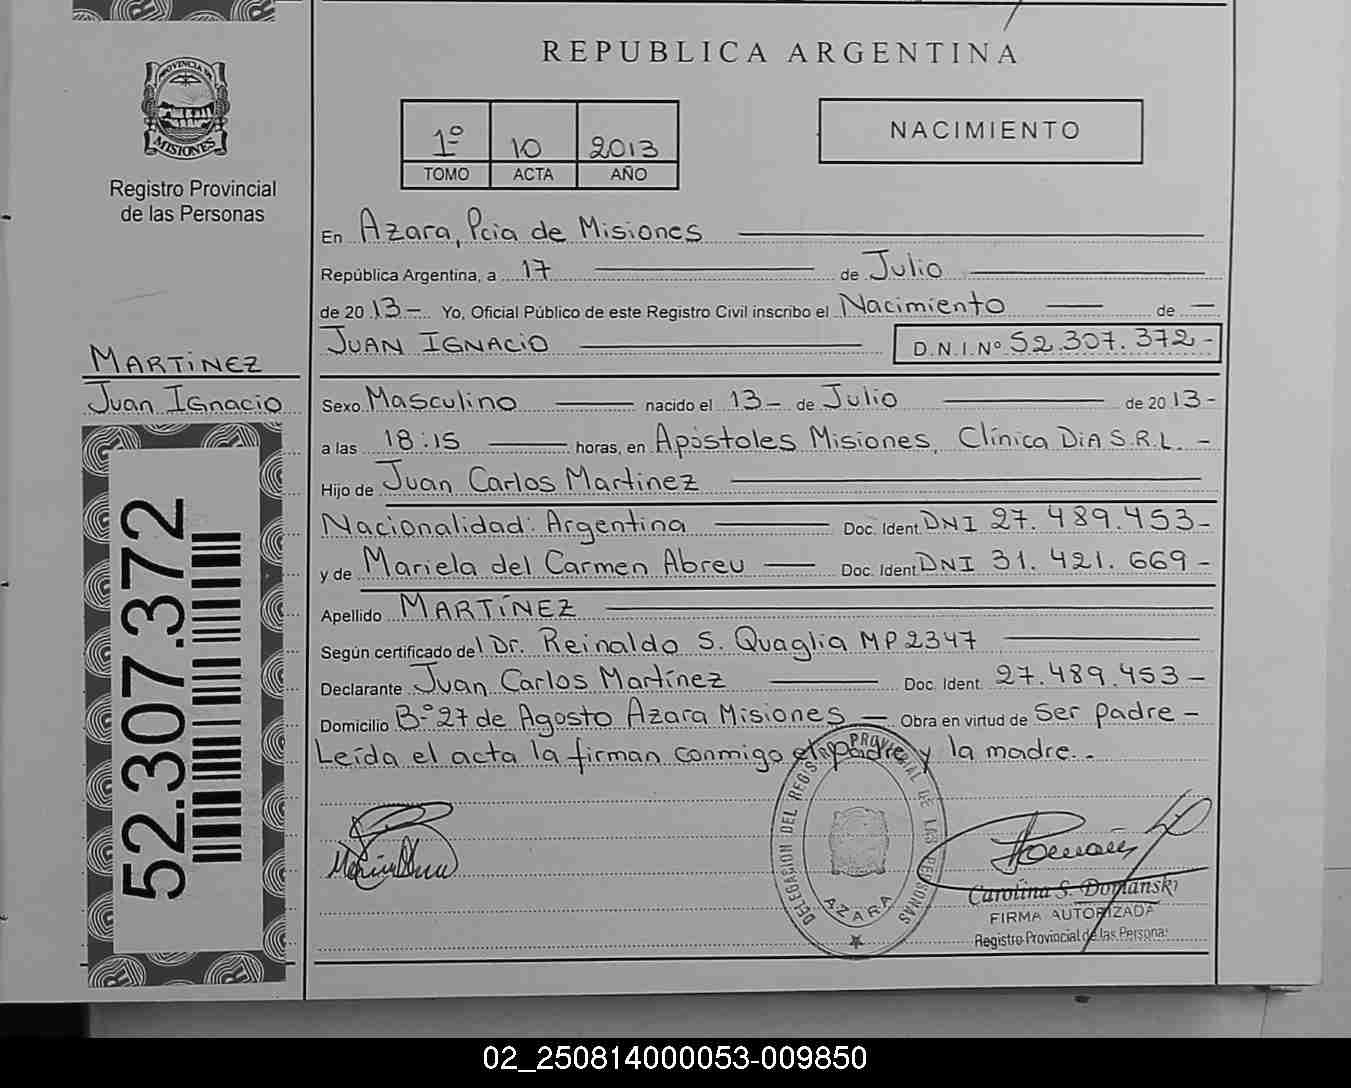 REPUBLICA ARGENTINA
PROVINCIA DE
MISIONES
Registro Provincial
de las Personas
1º 10 2013
TOMO ACTA AÑO
NACIMIENTO
En Azara, Pcia de Misiones
República Argentina, a 17 de Julio
de 2013- Yo, Oficial Público de este Registro Civil inscribo el Nacimiento de -
JUAN IGNACIO D.N.I.Nº 52.307.372-
MARTINEZ
Juan Ignacio
Sexo Masculino nacido el 13- de Julio de 2013-
a las 18:15 horas, en Apóstoles Misiones, Clínica DiA S.R.L. -
Hijo de Juan Carlos Martinez
Nacionalidad: Argentina Doc. Ident. DNI 27.489.453-
y de Mariela del Carmen Abreu Doc. Ident. DNI 31.421.669-
Apellido MARTÍNEZ
Según certificado del Dr. Reinaldo S. Quaglia MP 2347
Declarante Juan Carlos Martínez Doc. Ident. 27.489.453-
Domicilio Bº 27 de Agosto Azara Misiones - Obra en virtud de Ser padre -
Leída el acta la firman conmigo el padre y la madre..
52.307.372
DELEGACION DEL REGISTRO PROVINCIAL DE LAS PERSONAS
AZARA
Carolina S. Domanski
FIRMA AUTORIZADA
Registro Provincial de las Personas
02_250814000053-009850